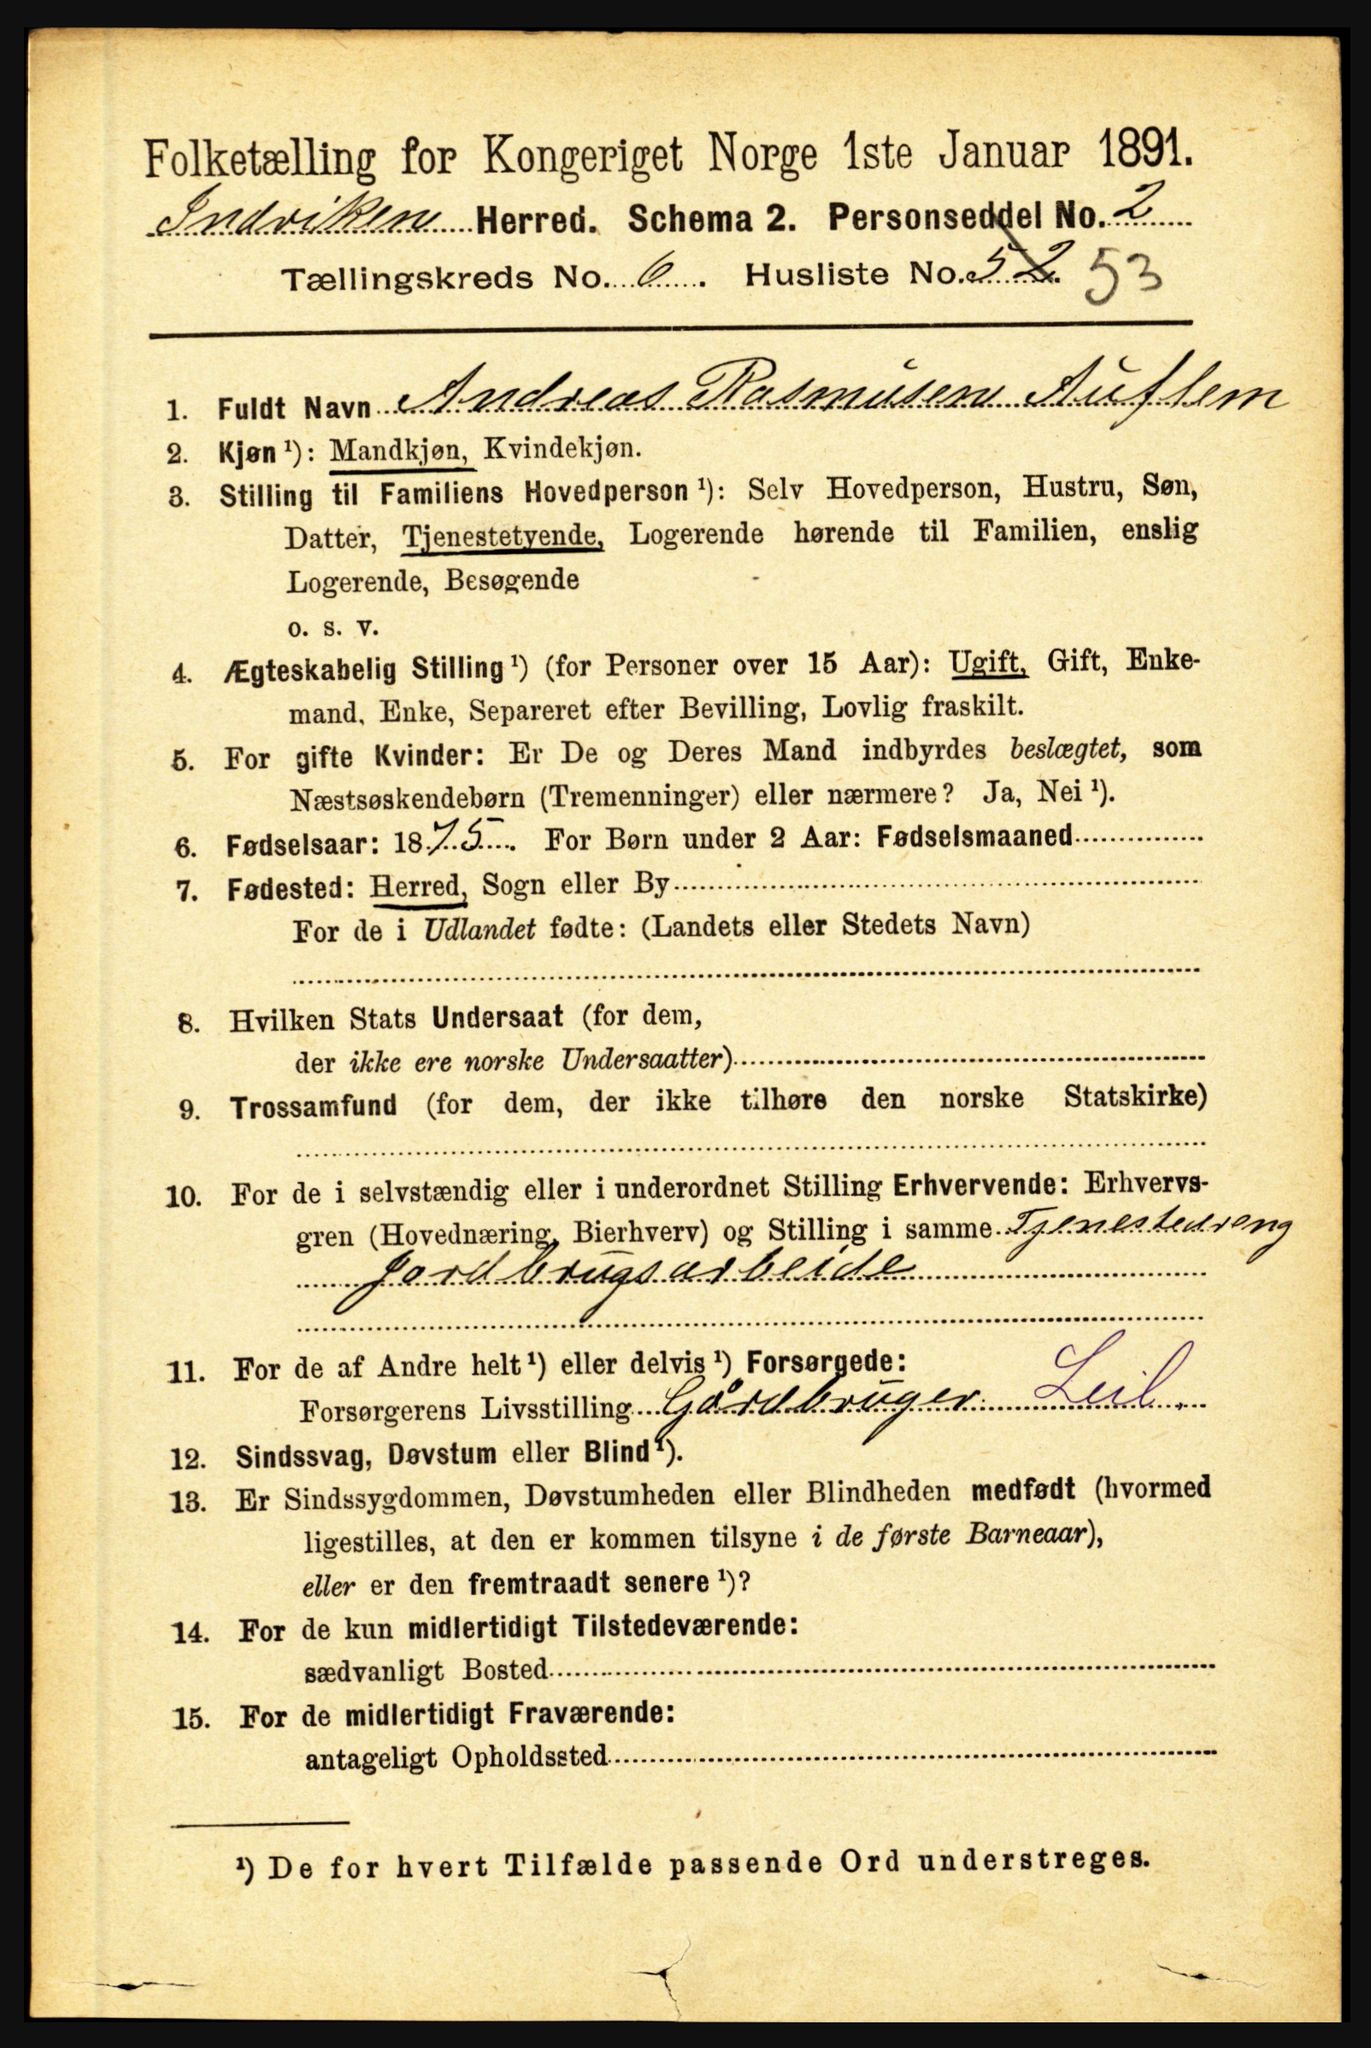 Folketælling for Kongeriget Norge 1ste Januar 1891.
Indviken Herred. Schema 2. Personseddel No. 2
Tællingskreds No. 6. Husliste No. 52. 53
1. Fuldt Navn Andreas Rasmusen Auflem
2. Kjøn ¹): Mandkjøn, Kvindekjøn.
3. Stilling til Familiens Hovedperson ¹): Selv Hovedperson, Hustru, Søn,
Datter, Tjenestetyende, Logerende hørende til Familien, enslig
Logerende, Besøgende
o. s. v.
4. Ægteskabelig Stilling ¹) (for Personer over 15 Aar): Ugift, Gift, Enke-
mand, Enke, Separeret efter Bevilling, Lovlig fraskilt.
5. For gifte Kvinder: Er De og Deres Mand indbyrdes beslægtet, som
Næstsøskendebørn (Tremenninger) eller nærmere? Ja, Nei ¹).
6. Fødselsaar: 1875. For Børn under 2 Aar: Fødselsmaaned
7. Fødested: Herred, Sogn eller By
For de i Udlandet fødte: (Landets eller Stedets Navn)
8. Hvilken Stats Undersaat (for dem,
der ikke ere norske Undersaatter)
9. Trossamfund (for dem, der ikke tilhøre den norske Statskirke)
10. For de i selvstændig eller i underordnet Stilling Erhvervende: Erhvervs-
gren (Hovednæring, Bierhverv) og Stilling i samme Tjenestedreng
Jordbrugsarbeide
11. For de af Andre helt ¹) eller delvis ¹) Forsørgede:
Forsørgerens Livsstilling Gårdbruger Leil.
12. Sindssvag, Døvstum eller Blind ¹).
13. Er Sindssygdommen, Døvstumheden eller Blindheden medfødt (hvormed
ligestilles, at den er kommen tilsyne i de første Barneaar),
eller er den fremtraadt senere ¹)?
14. For de kun midlertidigt Tilstedeværende:
sædvanligt Bosted
15. For de midlertidigt Fraværende:
antageligt Opholdssted
¹) De for hvert Tilfælde passende Ord understreges.